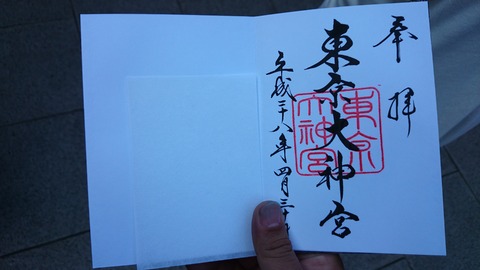 奉拝
東京大神宮
東京
大神宮
平成二十八年四月三十日